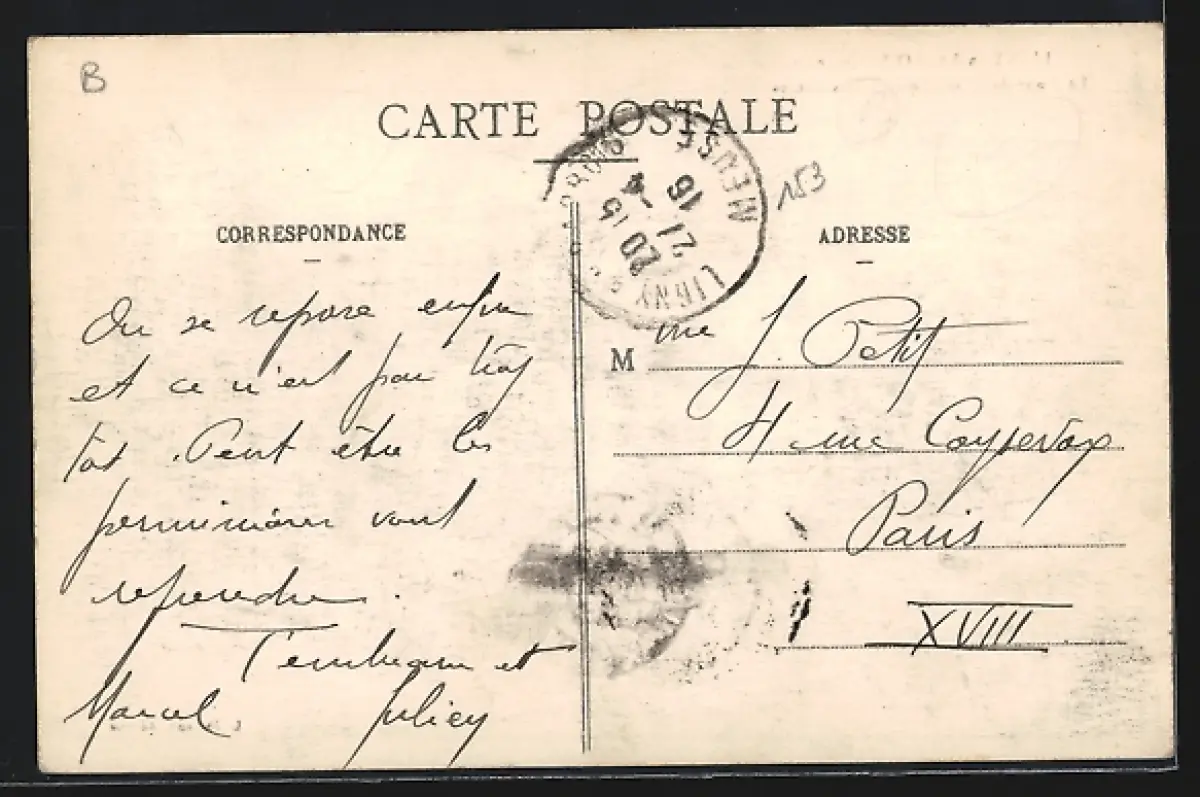 B
CARTE POSTALE
MEUSE
LIGNY
20 15
21
16
153
CORRESPONDANCE
ADRESSE
On se repose enfin
et ce n'est pas trop
tôt. Peut être les
permissions vont
reprendre.
T'embrasse et
Marcel Julien
M me J. Petit
4 rue Coysevox
Paris
XVIII